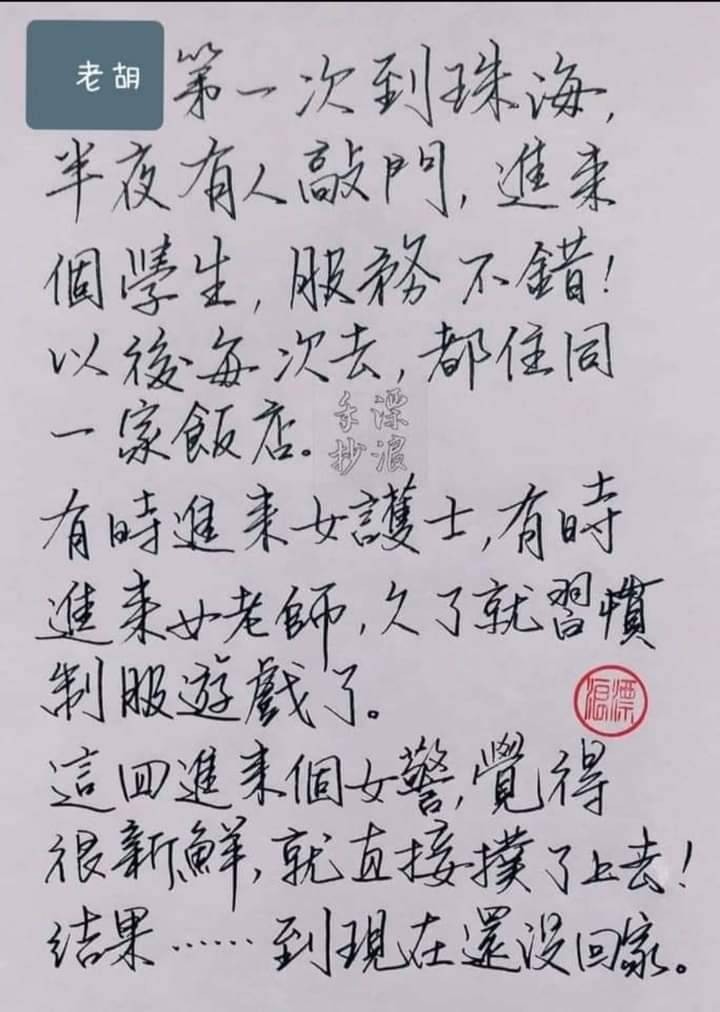 老胡
第一次到珠海,
半夜有人敲門, 進來
個學生, 服務不錯!
以後每次去, 都住同
一家飯店。
漂浪
手抄
有時進來女護士, 有時
進來女老師, 久了就習慣
制服遊戲了。
漂浪
這回進來個女警, 覺得
很新鮮, 就直接撲了上去!
結果……到現在還沒回家。